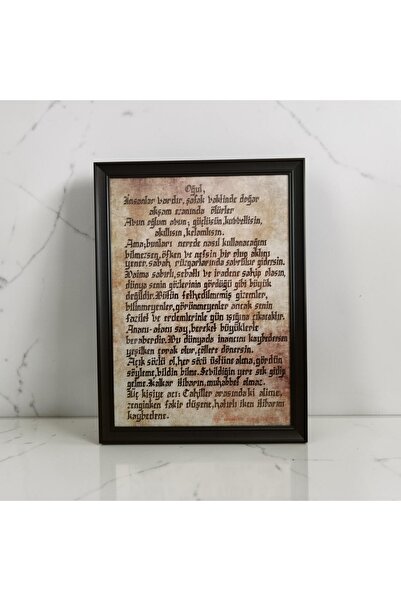 Oğul,
İnsanlar vardır, şafak vaktinde doğar
akşam ezanında ölürler
Avun oğlum avun, güçlüsün, kuvvetlisin,
akıllısın, kelamlısın.
Ama; bunları nerede nasıl kullanacağını
bilmezsen, öfken ve nefsin bir olup aklını
yener, sabah rüzgarlarında savrulur gidersin.
Daima sabırlı, sebatlı ve iradene sahip olasın,
dünya senin gözlerinin gördüğü gibi büyük
değildir. Bütün fethedilmemiş gizemler,
bilinmeyenler, görünmeyenler ancak senin
fazilet ve erdemlerinle gün ışığına çıkacaktır.
Ananı-atanı say, bereket büyüklerle
beraberdir. Bu dünyada inancını kaybedersen
yeşilken çorak olur, çöllere dönersin.
Açık sözlü ol, her sözü üstüne alma, gördün
söyleme, bildin bilme. Sevildiğin yere sık gidip
gelme. Kalkar itibarın, muhabbet olmaz.
Üç kişiye acı: Cahiller arasındaki alime,
zenginken fakir düşene, hatırlı iken itibarını
kaybedene.